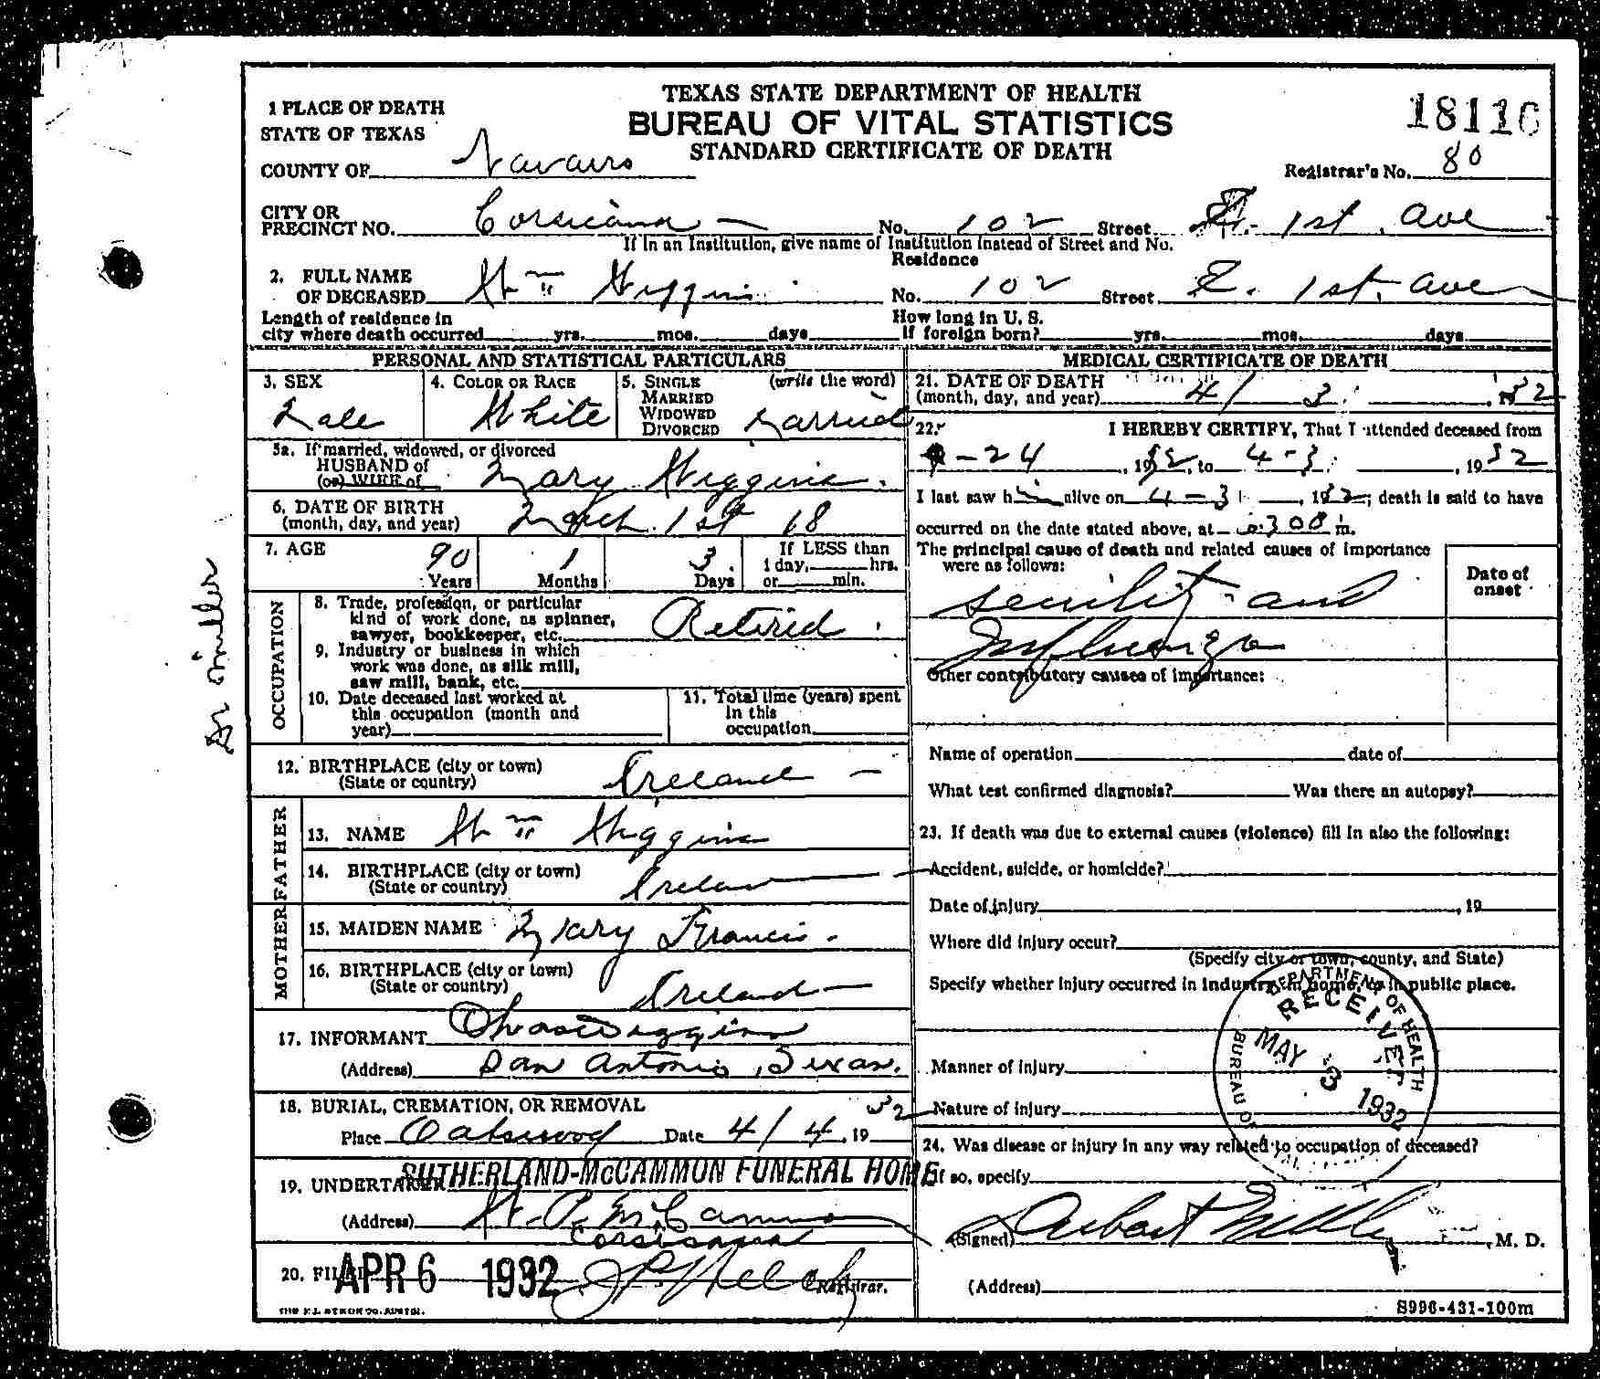 TEXAS STATE DEPARTMENT OF HEALTH
BUREAU OF VITAL STATISTICS
STANDARD CERTIFICATE OF DEATH
18116
Registrar's No. 80
1 PLACE OF DEATH
STATE OF TEXAS
COUNTY OF Navarro
CITY OR PRECINCT NO. Corsicana No. 102 Street E. 1st. Ave
If in an Institution, give name of Institution instead of Street and No.
Residence
2. FULL NAME OF DECEASED Wm Higgins No. 102 Street E. 1st. Ave
Length of residence in city where death occurred yrs. mos. days
How long in U. S. if foreign born? yrs. mos. days
PERSONAL AND STATISTICAL PARTICULARS
3. SEX Male
4. COLOR OR RACE White
5. SINGLE MARRIED WIDOWED DIVORCED (write the word) Married
5a. If married, widowed, or divorced
HUSBAND of
(or) WIFE of Mary Higgins.
6. DATE OF BIRTH (month, day, and year) March 1st
7. AGE 90 Years 1 Months 3. Days
If LESS than 1 day, hrs. or min.
OCCUPATION
8. Trade, profession, or particular kind of work done, as spinner, sawyer, bookkeeper, etc. Retired.
9. Industry or business in which work was done, as silk mill, saw mill, bank, etc.
10. Date deceased last worked at this occupation (month and year)
11. Total time (years) spent in this occupation
12. BIRTHPLACE (city or town) (State or country) Ireland
FATHER
13. NAME Wm Higgins
14. BIRTHPLACE (city or town) (State or country) Irelan
MOTHER
15. MAIDEN NAME Mary Francis.
16. BIRTHPLACE (city or town) (State or country) Ireland
17. INFORMANT Chas Higgins
(Address) San Antonio, Texas.
18. BURIAL, CREMATION, OR REMOVAL
Place Oakwood Date 4/4, 1932
SUTHERLAND-McCAMMON FUNERAL HOME
19. UNDERTAKER
(Address) Corsicana
20. FILED APR 6 1932 Registrar.
MEDICAL CERTIFICATE OF DEATH
21. DATE OF DEATH (month, day, and year) 4/3. 32
22. I HEREBY CERTIFY, That I attended deceased from
-24, 1932, to 4-3, 1932
I last saw him alive on 4-3, 1932; death is said to have
occurred on the date stated above, at 300 m.
The principal cause of death and related causes of importance were as follows:
Date of onset
senility and
Influenza
Other contributory causes of importance:
Name of operation date of
What test confirmed diagnosis? Was there an autopsy?
23. If death was due to external causes (violence) fill in also the following:
Accident, suicide, or homicide?
Date of injury , 19
Where did injury occur?
(Specify city or town, county, and State)
Specify whether injury occurred in industry, in home, or in public place.
Manner of injury
Nature of injury
DEPARTMENT OF HEALTH
RECEIVED
MAY 3 1932
BUREAU OF
24. Was disease or injury in any way related to occupation of deceased?
If so, specify
(Signed) Miller, M. D.
(Address)
S996-431-100m
Dr Miller